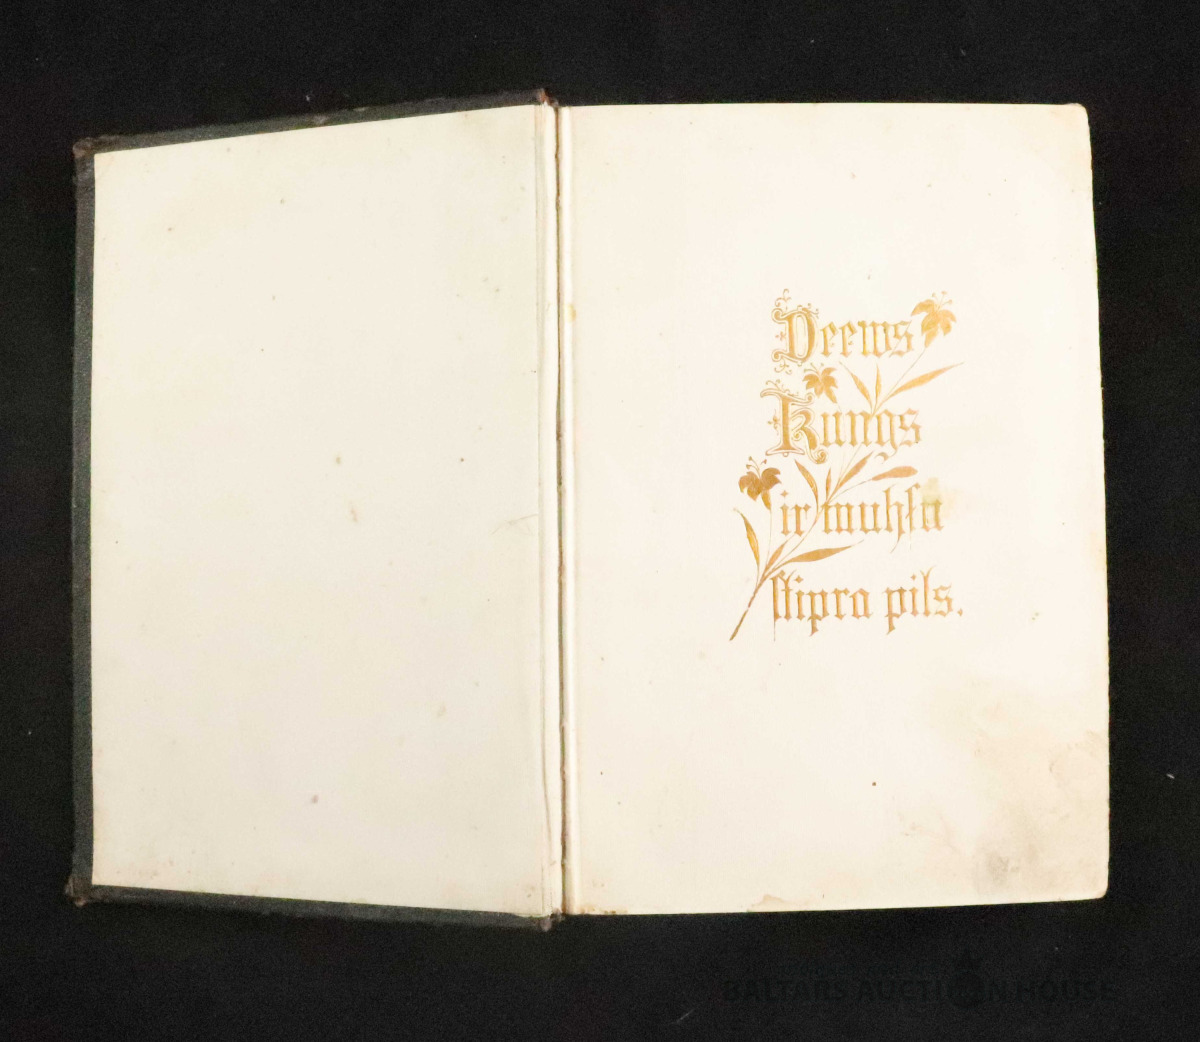 Deews
Kungs
ir muhſa
ſtipra pils.
BALTARS AUCTION HOUSE